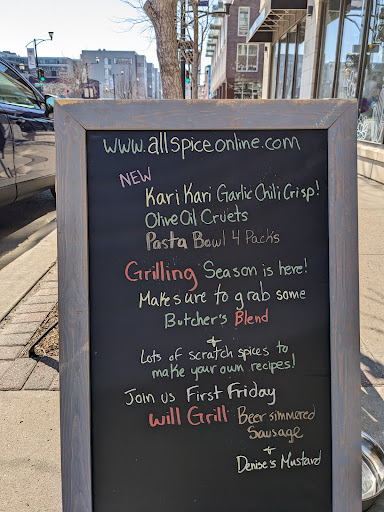 www.allspiceonline.com
NEW
Kari Kari Garlic Chili Crisp!
Olive Oil Cruets
Pasta Bowl 4 Packs
Grilling Season is here!
Make sure to grab some
Butcher's Blend
+
Lots of scratch spices to
make your own recipes!
Join us First Friday
will Grill Beer simmered
Sausage
+
Denise's Mustard